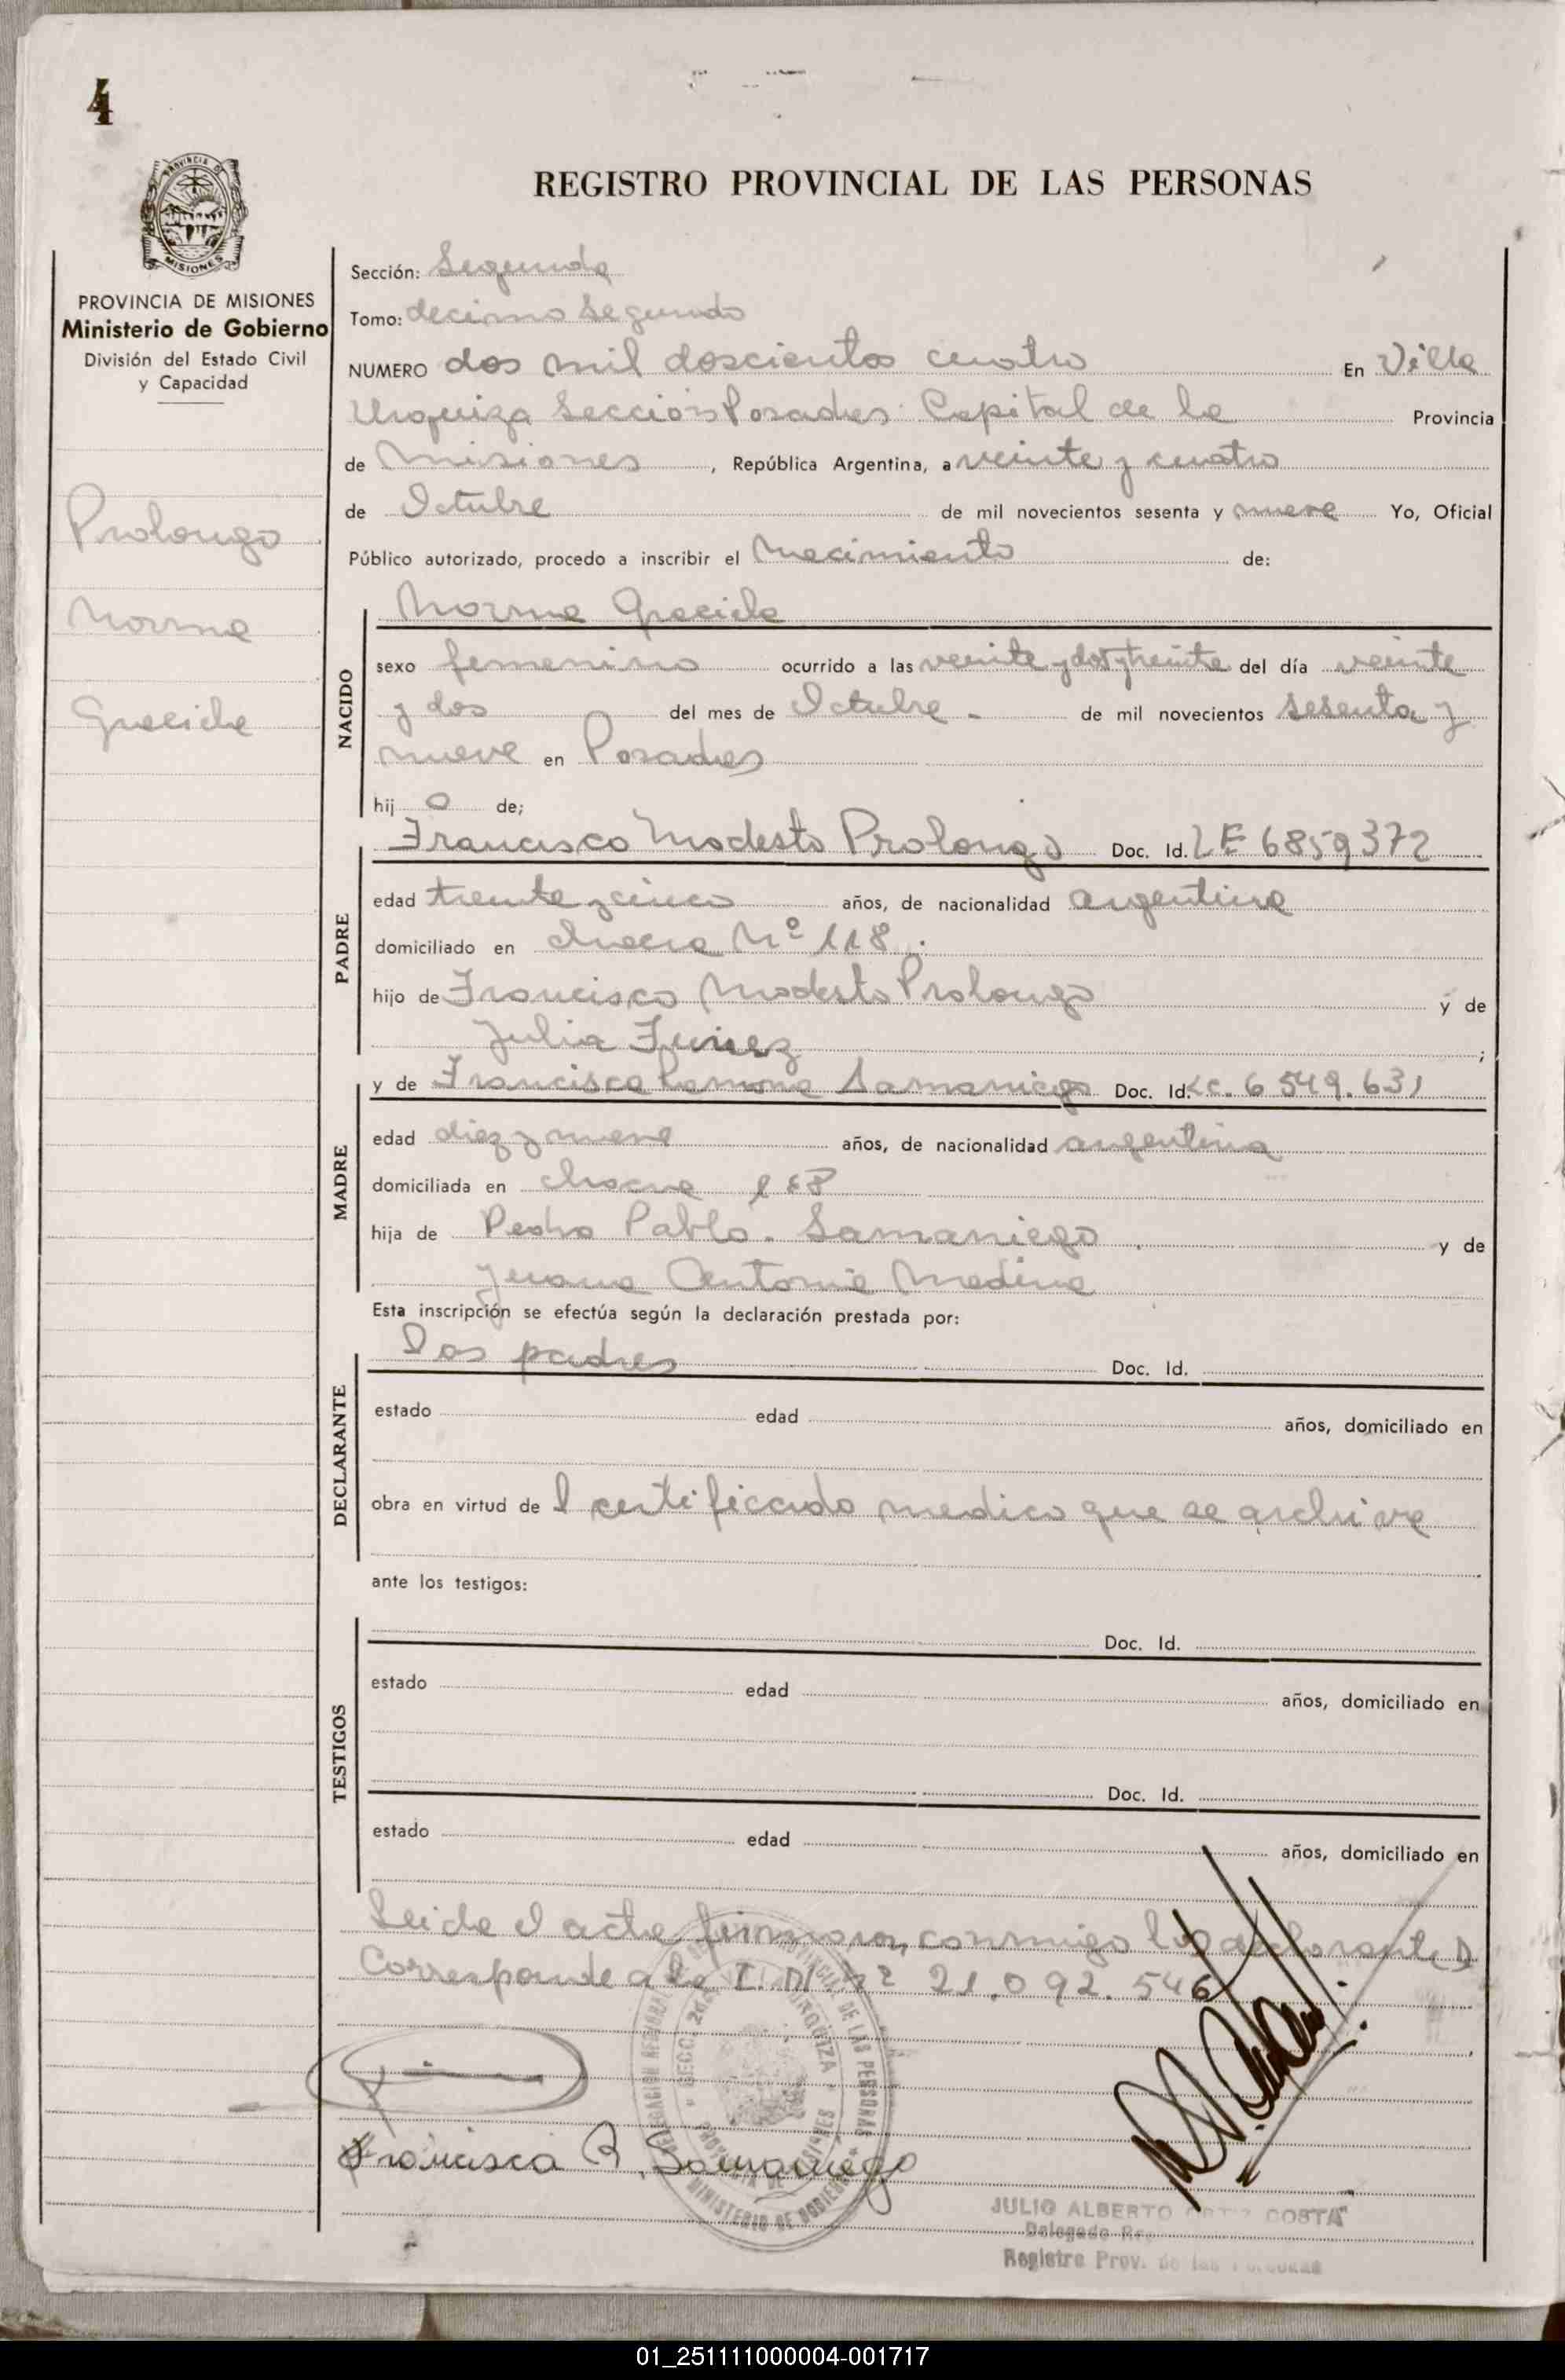 4
PROVINCIA DE MISIONES
Ministerio de Gobierno
División del Estado Civil
y Capacidad
Prolongo
Norma
Graciela
REGISTRO PROVINCIAL DE LAS PERSONAS
Sección: Segunda
Tomo: decimo segundo
NUMERO dos mil doscientos cuatro En Villa
Urquiza Sección Posadas Capital de la Provincia
de Misiones, República Argentina, a veinte y cuatro
de Octubre de mil novecientos sesenta y nueve Yo, Oficial
Público autorizado, procedo a inscribir el Nacimiento de:
Norma Graciela
NACIDO
sexo femenino ocurrido a las veinte y dos y treinta del día veinte
y dos del mes de Octubre - de mil novecientos sesenta y
nueve en Posadas
hij a de;
Francisco Modesto Prolongo Doc. Id. LE 6859372
PADRE
edad treinta y cinco años, de nacionalidad argentina
domiciliado en chacra Nº 118.
hijo de Francisco Modesto Prolongo y de
Julia Funez;
y de Francisca Ramona Samaniego Doc. Id. LC. 6549.631
MADRE
edad diez y nueve años, de nacionalidad argentina
domiciliada en chacra
hija de Pedro Pablo. Samaniego y de
Juana Antonia Medina
Esta inscripción se efectúa según la declaración prestada por:
Los padres Doc. Id.
DECLARANTE
estado edad años, domiciliado en
obra en virtud de l certificado medico que se archiva
ante los testigos:
Doc. Id.
TESTIGOS
estado edad años, domiciliado en
Doc. Id.
estado edad años, domiciliado en
Leida el acta firmaron conmigo los declarantes
Corresponde a la I. M Nº 21.092.546
Francisca R. Samaniego
JULIO ALBERTO ORTIZ COSTA
Delegado
Registro Prov. de las Personas
01_251111000004-001717